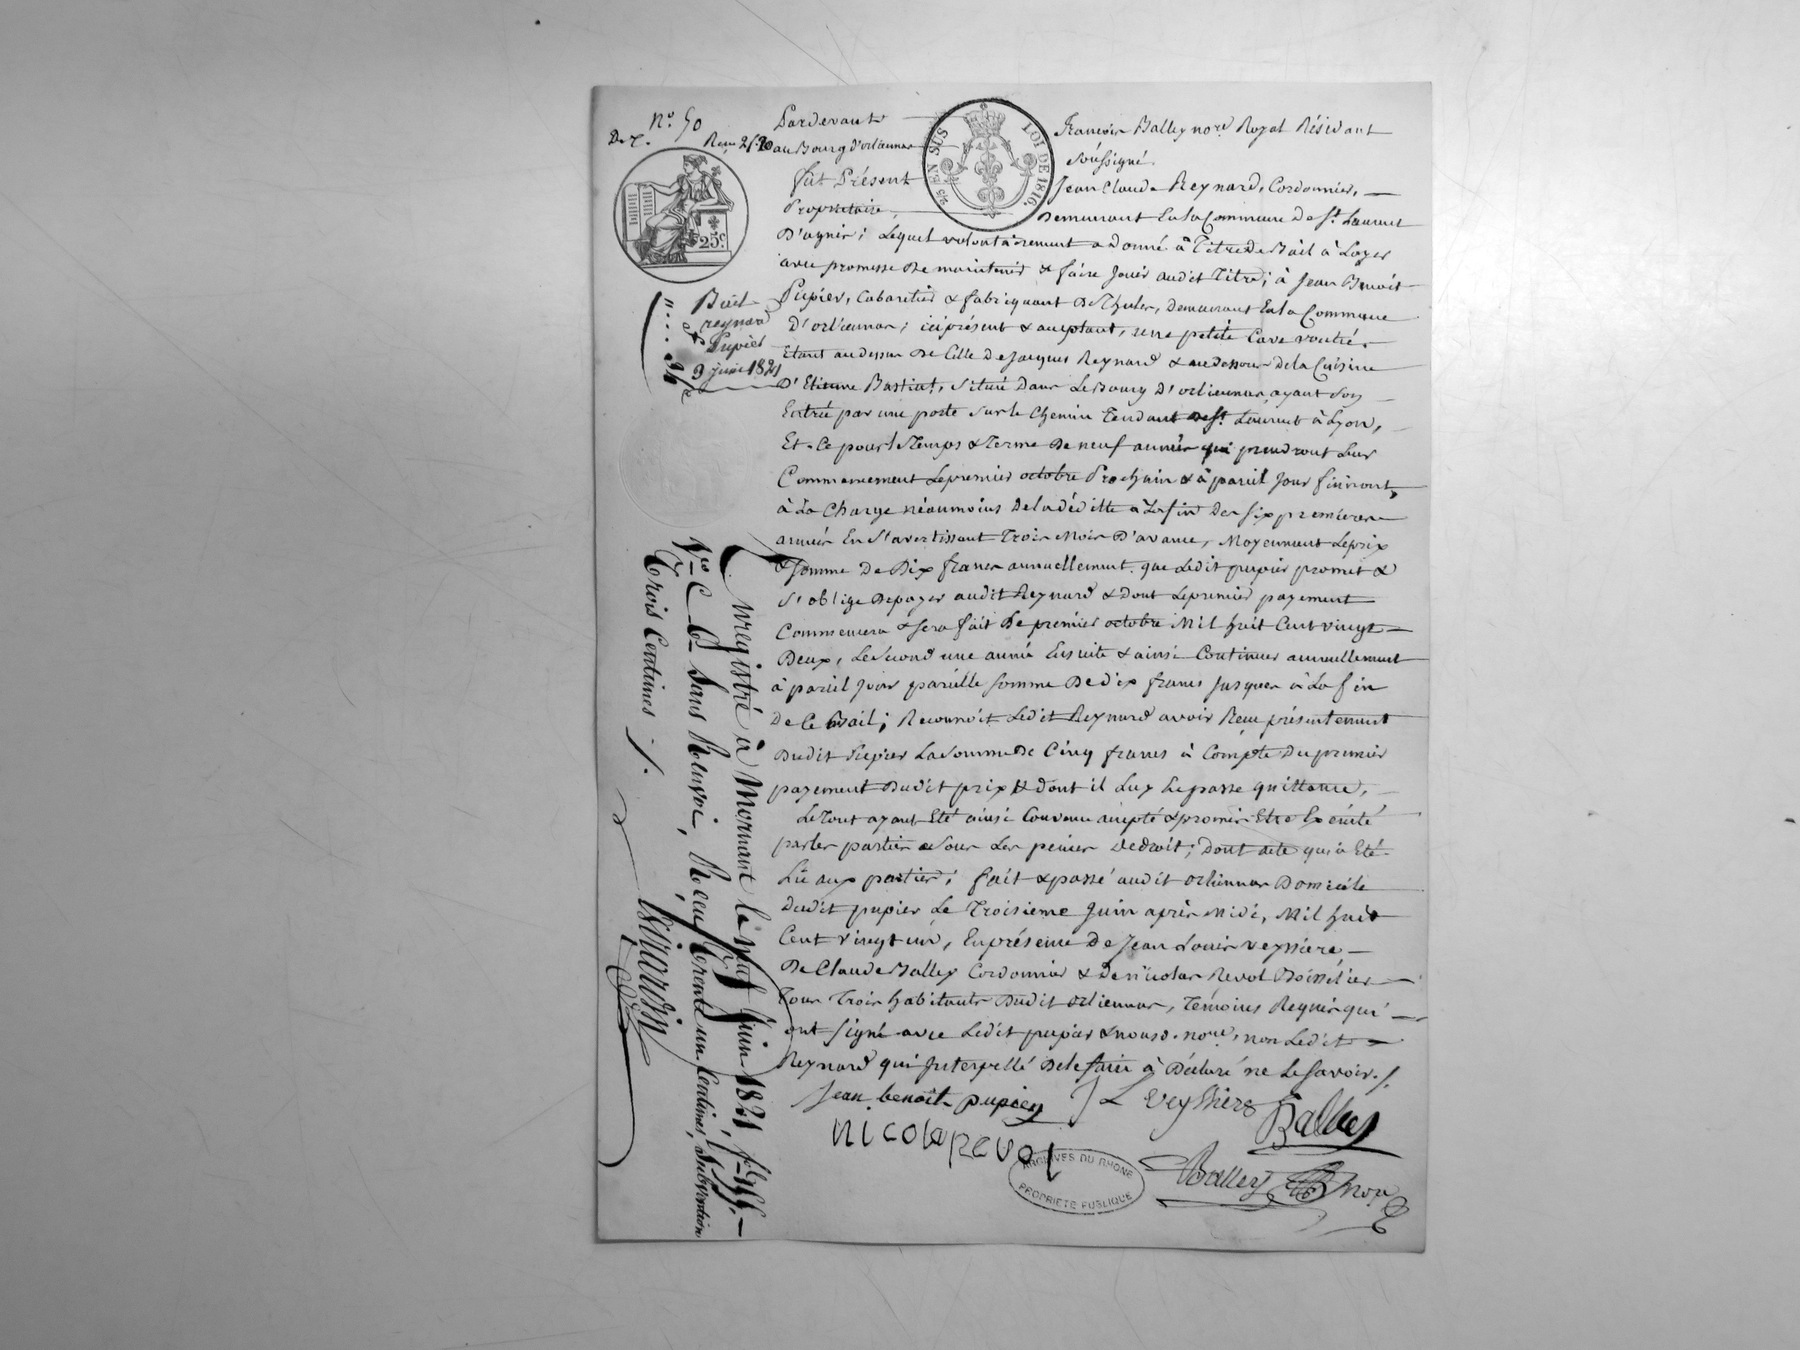 nº 50
Pardevant François Balley nore. Royal Résidant
au Bourg d'orliennas soussigné.
25 EN SUS
LOI DE 1816.
25c
fût Présent Jean Claude Reynard, Cordonnier,
Propriétaire, demeurant En la Commune de St. Laurent
D'agnis; Lequel volontairement a donné à Titre de Bail à Loyer
avec promesse de maintenir & faire Jouir audit Titre; à Jean Benoit
Pupier, Cabaretier & fabriquant De Thules, demeurant En la Commune
D'orliennas; ici présent & acceptant, une petite Cave voutée
Etant au dessus de Celle de Jacques Reynard & au dessous de la Cuisine
D'Etienne Bastiat, située dans Le Bourg D'orliennas, ayant Son
Entrée par une porte sur le Chemin Tendant de St. Laurent à Lyon,
Et Ce pour le Temps & Terme De neuf années qui prendront Leur
Commencement Le premier octobre Prochain & à pareil Jour finiront,
à La Charge néanmoins de la déditte à La fin des six premieres
années En S'avertissant Trois Mois D'avance, Moyennant Le prix
& Somme De Dix francs annuellement. que Ledit pupier promet &
S'oblige De payer audit Reynard & dont Le premier payement
Commencera & sera fait Le premier octobre Mil huit Cent vingt
Deux, Le Second une année Ensuite & ainsi Continuer annuellement
à pareil Jour pareille Somme De dix francs Jusques à La fin
De Ce Bail; Reconnoit Ledit Reynard avoir Reçu présentement
Dudit Pupier La Somme De Cinq francs à Compte Du premier
payement Dudit prix & dont il Luy En passe quittance,
Le Tout ayant Eté ainsi Convenu accepté & promis Etre Exécuté
par les parties Sous Les peines De droit; Dont acte qui a Eté
Lû aux parties; fait & passé audit orliennas Domicile
Dudit pupier Le Troisieme Juin après Midi, Mil huit
Cent vingt un, En présence De Jean Louis veyssiere
De Claude Balley Cordonnier & De nicolas Revol Boisselier
Tous Trois habitants Dudit orliennas, Témoins Requis qui
ont Signé avec Ledit pupier & nousd. nore, non Ledit
Reynard qui Interpellé De le faire à Déclaré ne Le Savoir ./.
Jean benoit pupier
J L veyssiere
Balley
nicola Revol
Balley nore
ARCHIVES DU RHONE
PROPRIETE PUBLIQUE
Bail
reynard
à Pupier
9 juin 1821
Enregistré à Mornant le neuf Juin 1821, fo 155,
Vo C 6 Sans Renvoi, Reçu trente un Centimes, Subvention
Trois Centimes ./.
Girardin